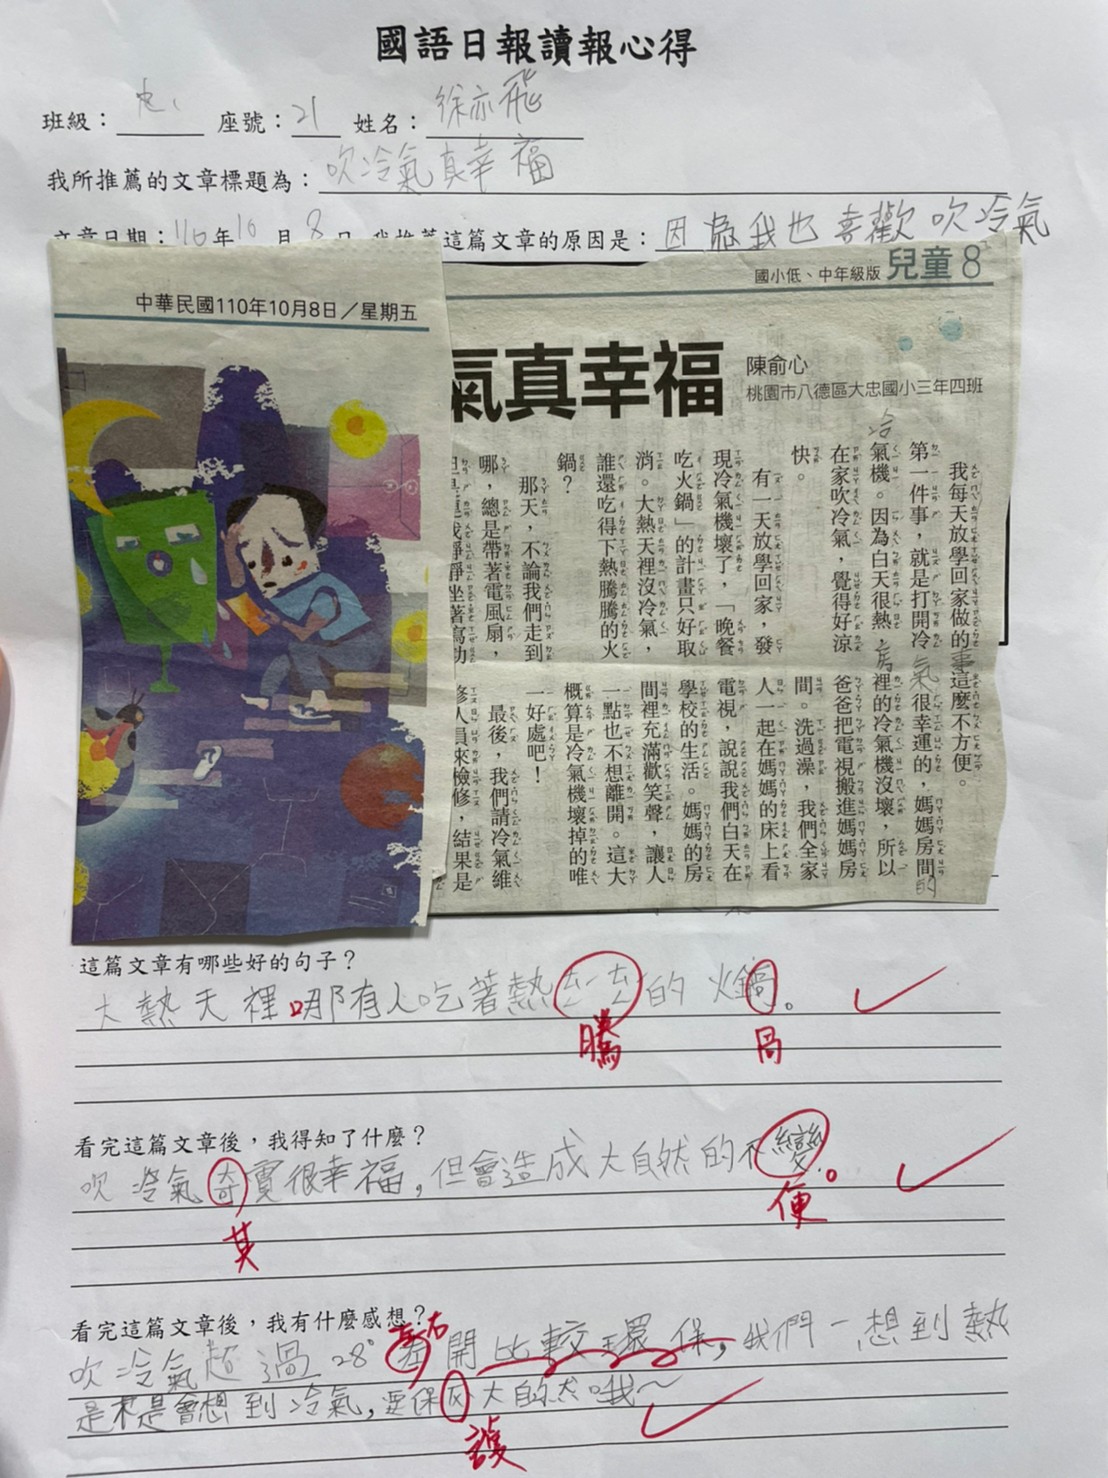 國語日報讀報心得
班級：忠 座號：21 姓名：徐亦飛
我所推薦的文章標題為：吹冷氣真幸福
文章日期：110年10月8日 我推薦這篇文章的原因是：因為我也喜歡吹冷氣
中華民國110年10月8日／星期五
國小低、中年級版 兒童 8
氣真幸福
陳俞心
桃園市八德區大忠國小三年四班
我每天放學回家做的
第一件事，就是打開冷
氣機。因為白天很熱，
在家吹冷氣，覺得好涼
快。
有一天放學回家，發
現冷氣機壞了，「晚餐
吃火鍋」的計畫只好取
消。大熱天裡沒冷氣，
誰還吃得下熱騰騰的火
鍋？
那天，不論我們走到
哪，總是帶著電風扇，
但是連我靜靜坐著寫功
事這麼不方便。
氣很幸運的，媽媽房間
房裡的冷氣機沒壞，所以
爸爸把電視搬進媽媽房
間。洗過澡，我們全家
人一起在媽媽的床上看
電視，說說我們白天在
學校的生活。媽媽的房
間裡充滿歡笑聲，讓人
一點也不想離開。這大
概算是冷氣機壞掉的唯
一好處吧！
最後，我們請冷氣維
修人員來檢修，結果是
冷
的
這篇文章有哪些好的句子？
大熱天裡哪有人吃著熱ㄊㄥˊㄊㄥˊ的火鍋。
騰 咼
看完這篇文章後，我得知了什麼？
吹冷氣奇實很幸福，但會造成大自然的不變。
其 便
看完這篇文章後，我有什麼感想？
吹冷氣超過28°再開比較環保，我們一想到熱
是不是會想到冷氣，要保ㄏㄨˋ大自然哦～
護